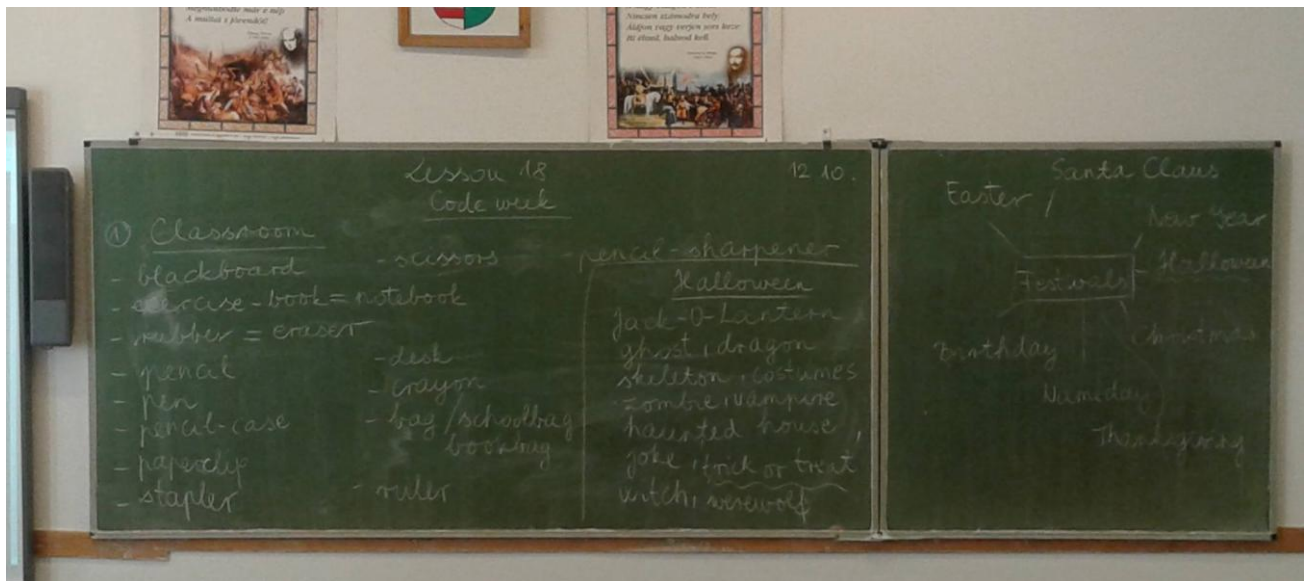 A múltat s jövendőt!
Nincsen számodra hely:
Áldjon vagy verjen sors keze:
Itt élned, halnod kell.
Lesson 18
12.10.
Code week
① Classroom
- blackboard
- scissors
- pencil-sharpener
- exercise-book = notebook
- rubber = eraser
- pencil
- desk
- pen
- crayon
- pencil-case
- bag/schoolbag
bookbag
- paperclip
- stapler
- ruler
Halloween
Jack-O-Lantern,
ghost, dragon
skeleton, costumes
zombie, vampire
haunted house,
joke, trick or treat
witch, werewolf
Santa Claus
Easter
New Year
Halloween
Festivals
Christmas
Birthday
Nameday
Thanksgiving